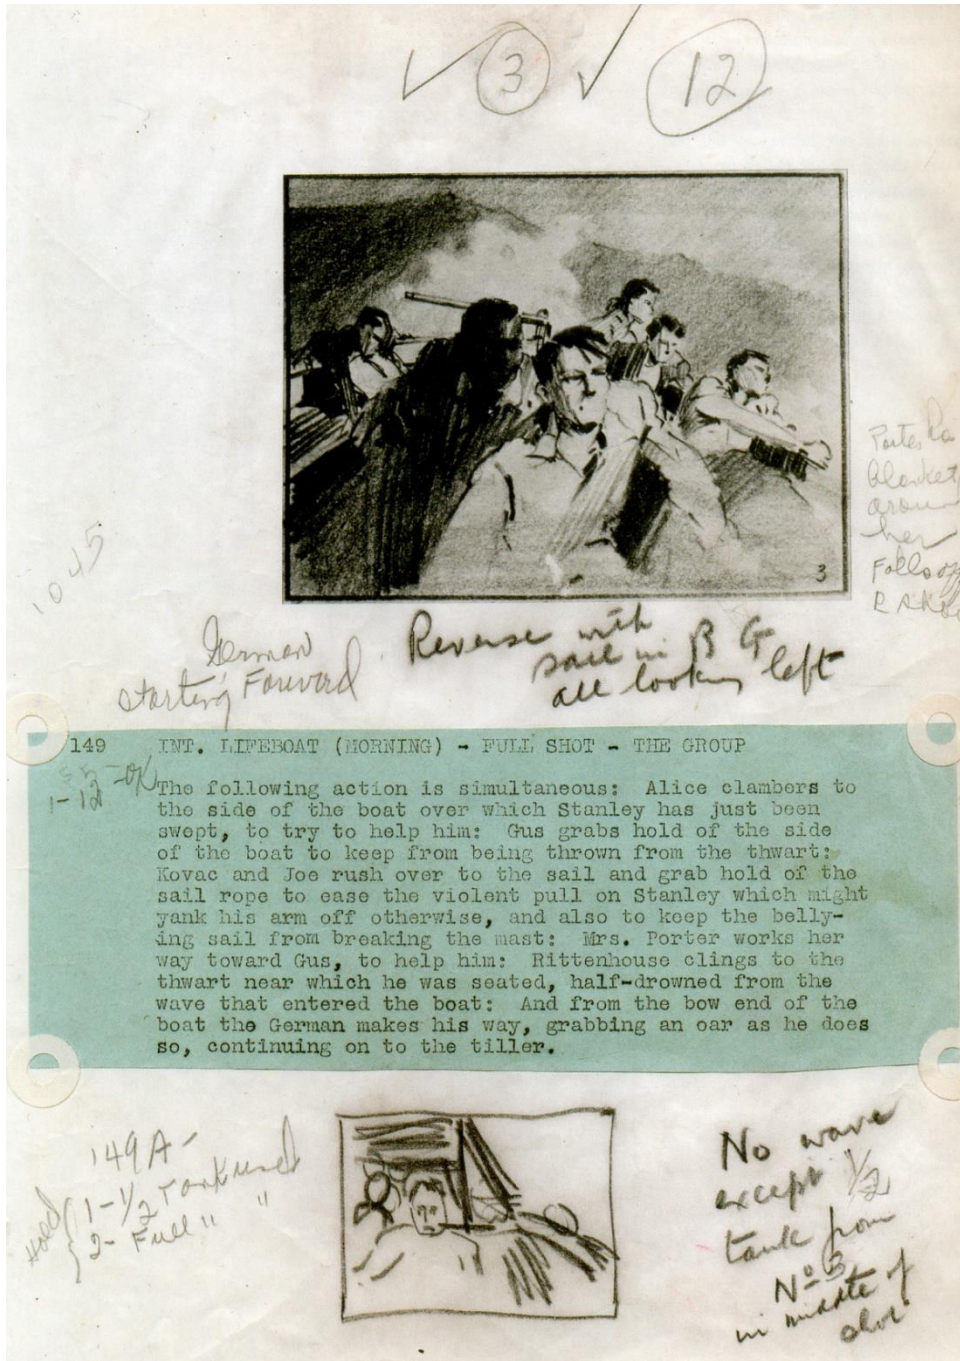 3 12
3
Porter's
blanket
around
her
Falls off
1045
German
Starting Forward
Reverse with
sail in B G
all looking left
149 INT. LIFEBOAT (MORNING) - FULL SHOT - THE GROUP
1-12 -OK
The following action is simultaneous: Alice clambers to
the side of the boat over which Stanley has just been
swept, to try to help him: Gus grabs hold of the side
of the boat to keep from being thrown from the thwart:
Kovac and Joe rush over to the sail and grab hold of the
sail rope to ease the violent pull on Stanley which might
yank his arm off otherwise, and also to keep the belly-
ing sail from breaking the mast: Mrs. Porter works her
way toward Gus, to help him: Rittenhouse clings to the
thwart near which he was seated, half-drowned from the
wave that entered the boat: And from the bow end of the
boat the German makes his way, grabbing an oar as he does
so, continuing on to the tiller.
149A-
Hold
1-1/2 Tank used
2- Full " "
No wave
except 1/2
tank from
No 3
in middle of
shot